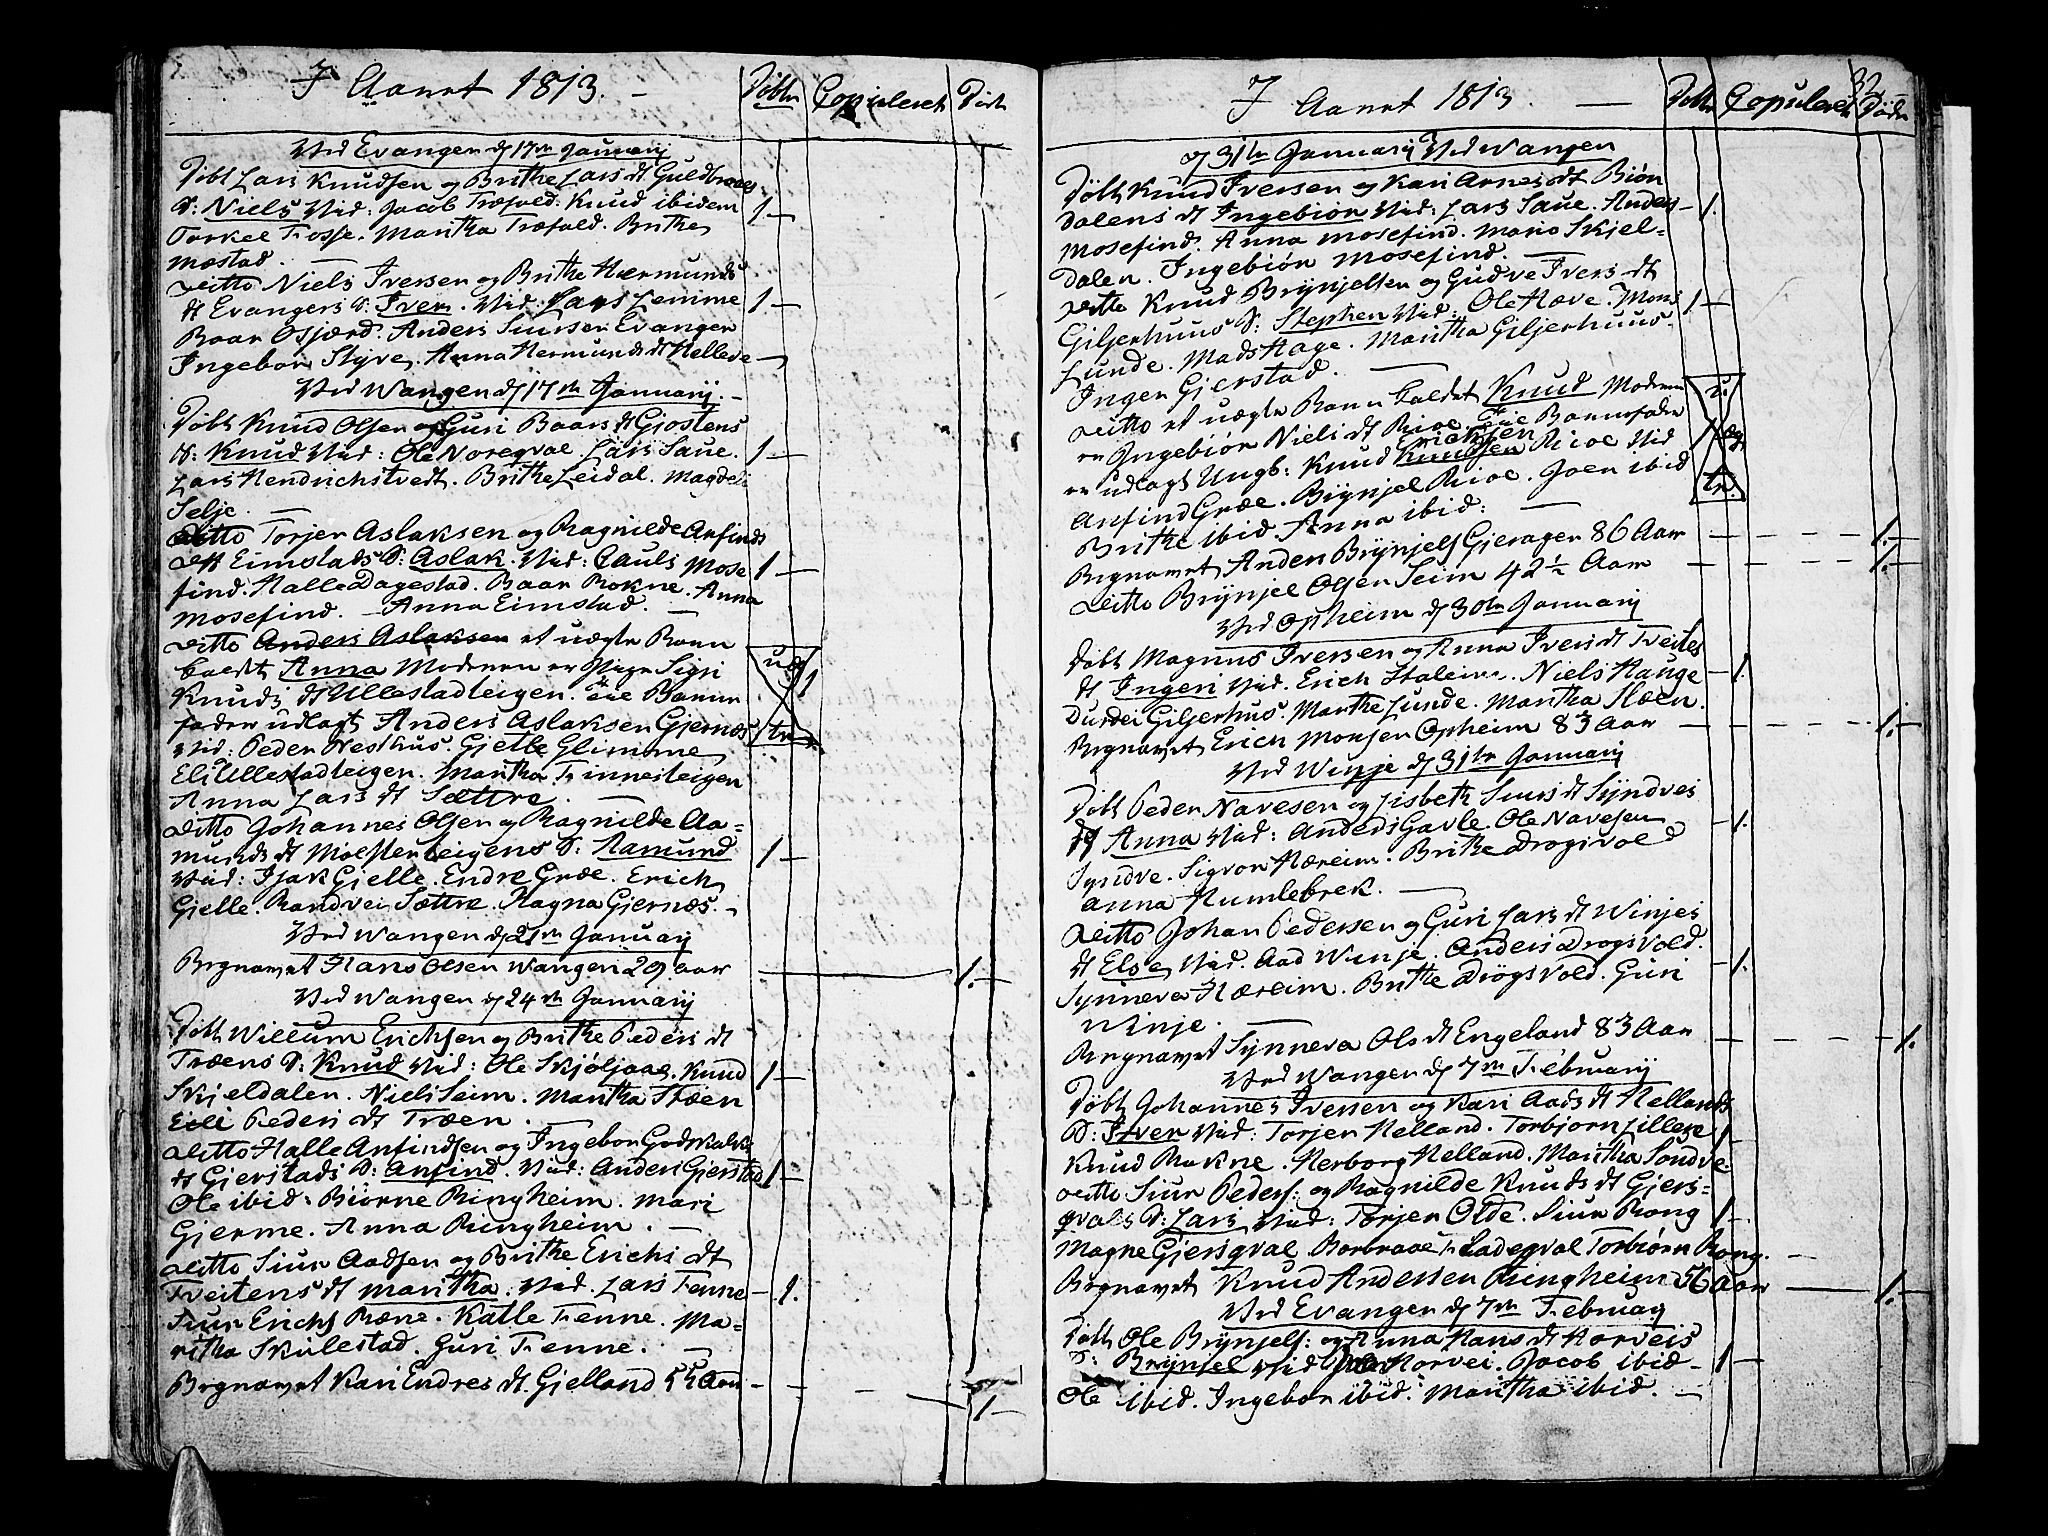 I Aaret 1813. Døbte Copuleret Døde
Ved Evanger d 17de Januarij
Døbt Lars Knudsen og Brithe Lars dt Guldbraaes
S: Niels Vid: Jacob Træfald. Knud ibidem 1
Torkel Fosse. Maritha Træfald. Brithe
Mæstad.
Ditto Niels Iversen og Brithe Hermunds
dt Evangers S: Iver. Vid: Lars Lemme 1
Baar Osjærd. Anders Siursen Evanger
Ingebor Styve. Anna Hermunds dt Hellede
Ved Wangen d 17de Januarij.
Døbt Knud Olsen og Guri Baars dt Gjostens
S: Knud Vid: Ole Noreqval Lars Saue. 1
Lars Hendrichstvedt. Brithe Leidal. Magdeli
Selje.
Ditto Torjer Aslaksen og Ragnilde Anfinds
dt Eimstads S: Aslak. Vid: Pauls Mose 1
find. Halle Dagestad. Baar Rokne. Anna
Mosefind. Anna Eimstad.
Ditto Anders Aslaksen et uægte Barn
kaldt Anna Moderen er Pige Sigri 1
Knuds dt Ullestadteigen. til Barne
fader udlagt Anders Aslaksen Gjernæs
Vid: Peder Nesthus. Gjelle Glimme
Eli Ullestadteigen. Maritha Finnesteigen
Anna Lars dt Sættre.
Ditto Johannes Olsen og Ragnilde Aa=
munds dt Mølsterteigens S: Aamund 1
Vid: Isak Gjelle. Endre Græe. Erich
Gjelle. Randvei Sættre. Ragna Gjernæs.
Ved Wangen d 21de Januarij
Begravet Hans Olsen Wangen 29 Aar 1.
Ved Wangen d 24de Januarij
Døbt Willum Erichsen og Brithe Peders dt
Træens S: Knud Vid: Ole Skjøljaae. Knud 1
Skjeldalen. Niels Seim. Maritha Støen
Eili Peders dt Træen.
Ditto Halle Anfindsen og Ingebor Godskalks
dt Gjerstads S: Anfind. Vid: Anders Gjerstad 1
Ole ibid: Biørne Ringheim. Mari
Gjerme. Anna Ringheim.
Ditto Siur Aadsen og Brithe Erichs dt
Tveitens dt Maritha. Vid. Lars Fenne 1.
Siur Erichs Ræne. Katle Fenne. Ma=
ritha Skulestad. Guri Fenne.
Begravet Kari Endres dt Gjelland 55 Aar 1
32
I Aaret 1813. Døbte Copuleret Døde
d 31te Januarij Ved Wangen
Døbt Knud Iversen og Kari Arnes dt Biøn
dalens dt Ingebiør Vid: Lars Saue. Anders 1.
Mosefind. Anna Mosefind. Mario Skjel=
dalen. Ingebiør Mosefind.
Ditto Knud Brÿnjelsen og Gudve Ivers dt
Giljerhuus S: Stephen Vid: Ole Hæve. Mons 1
Lunde. Mads Hage. Maritha Giljerhuus.
Inger Gjerstad.
Ditto et uægte Barn kaldet Knud Moderen
er Ingebiør Niels dt Rioe. til Barnefader
er udlagt Ungk: Knud Erichsen Rioe Vid 1
Anfind Græe. Brÿnjel Rioe. Joen ibid
Brithe ibid. Anna ibid:
Begravet Anden Brÿnjels Gjerager 86 Aar 1.
Ditto Brÿnjel Olsen Seim 42½ Aar 1.
Ved Opheim d 30te Januarij
Døbt Magnus Iversen og Anna Ivers dt Tveites
dt Ingeri Vid. Erich Staleim. Niels Hauge 1.
Durdei Giljerhus. Marthe Lunde. Maritha Hæen.
Begravet Erich Monsen Opheim 83 Aar 1.
Ved Winje d 31te Januarij
Døbt Peder Navesen og Lisbeth Siurs dt Sÿndves
dt Anna Vid: Anders Gavle. Ole Navesen 1.
Sÿndve. Sigvor Hæreim. Brithe Drogsvold
Anna Humlebrek.
Ditto Johan Pedersen og Guri Lars dt Winjes
dt Else Vid. Aad Winje. Anders Drogsvold. 1.
Sÿnneva Hæreim. Brithe Drogsvold. Guri
Winje.
Begravet Sÿnneva Ols dt Engeland 83 Aar 1.
Ved Wangen d 7de Februarij
Døbt Johannes Iversen og Kari Aads dt Hellands
S: Iver Vid: Torjer Helland. Torbjorn Lillere 1
Knud Rokne. Herborg Helland. Maritha Sondve.
Ditto Siur Peders: og Ragnilde Knuds dt Gjers=
qvals S: Lars Vid: Torjer Olde. Siur Rong 1
Magne Gjersqval Borbraae Ladeqval Torbiørn Rong.
Begravet Knud Andersen Ringheim 56 Aar 1.
Ved Evanger d 7de Februarij
Døbt Ole Brÿnjels: og Anna Hans dt Horveis
S: Brÿnjel Vid Horvei. Jacob ibid 1
Ole ibid. Ingebor ibid. Maritha ibid.